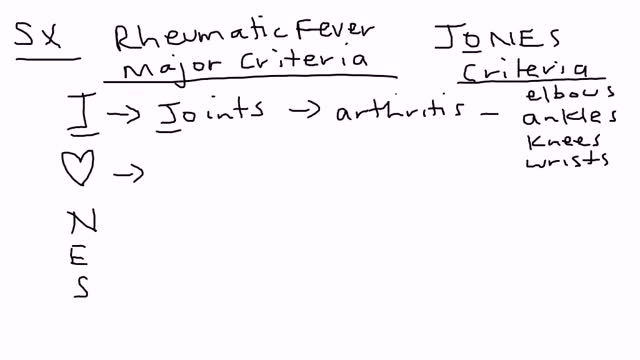 SX Rheumatic Fever JONES
Major Criteria Criteria
J → Joints → arthritis - elbows
ankles
knees
wrists
♡ →
N
E
S